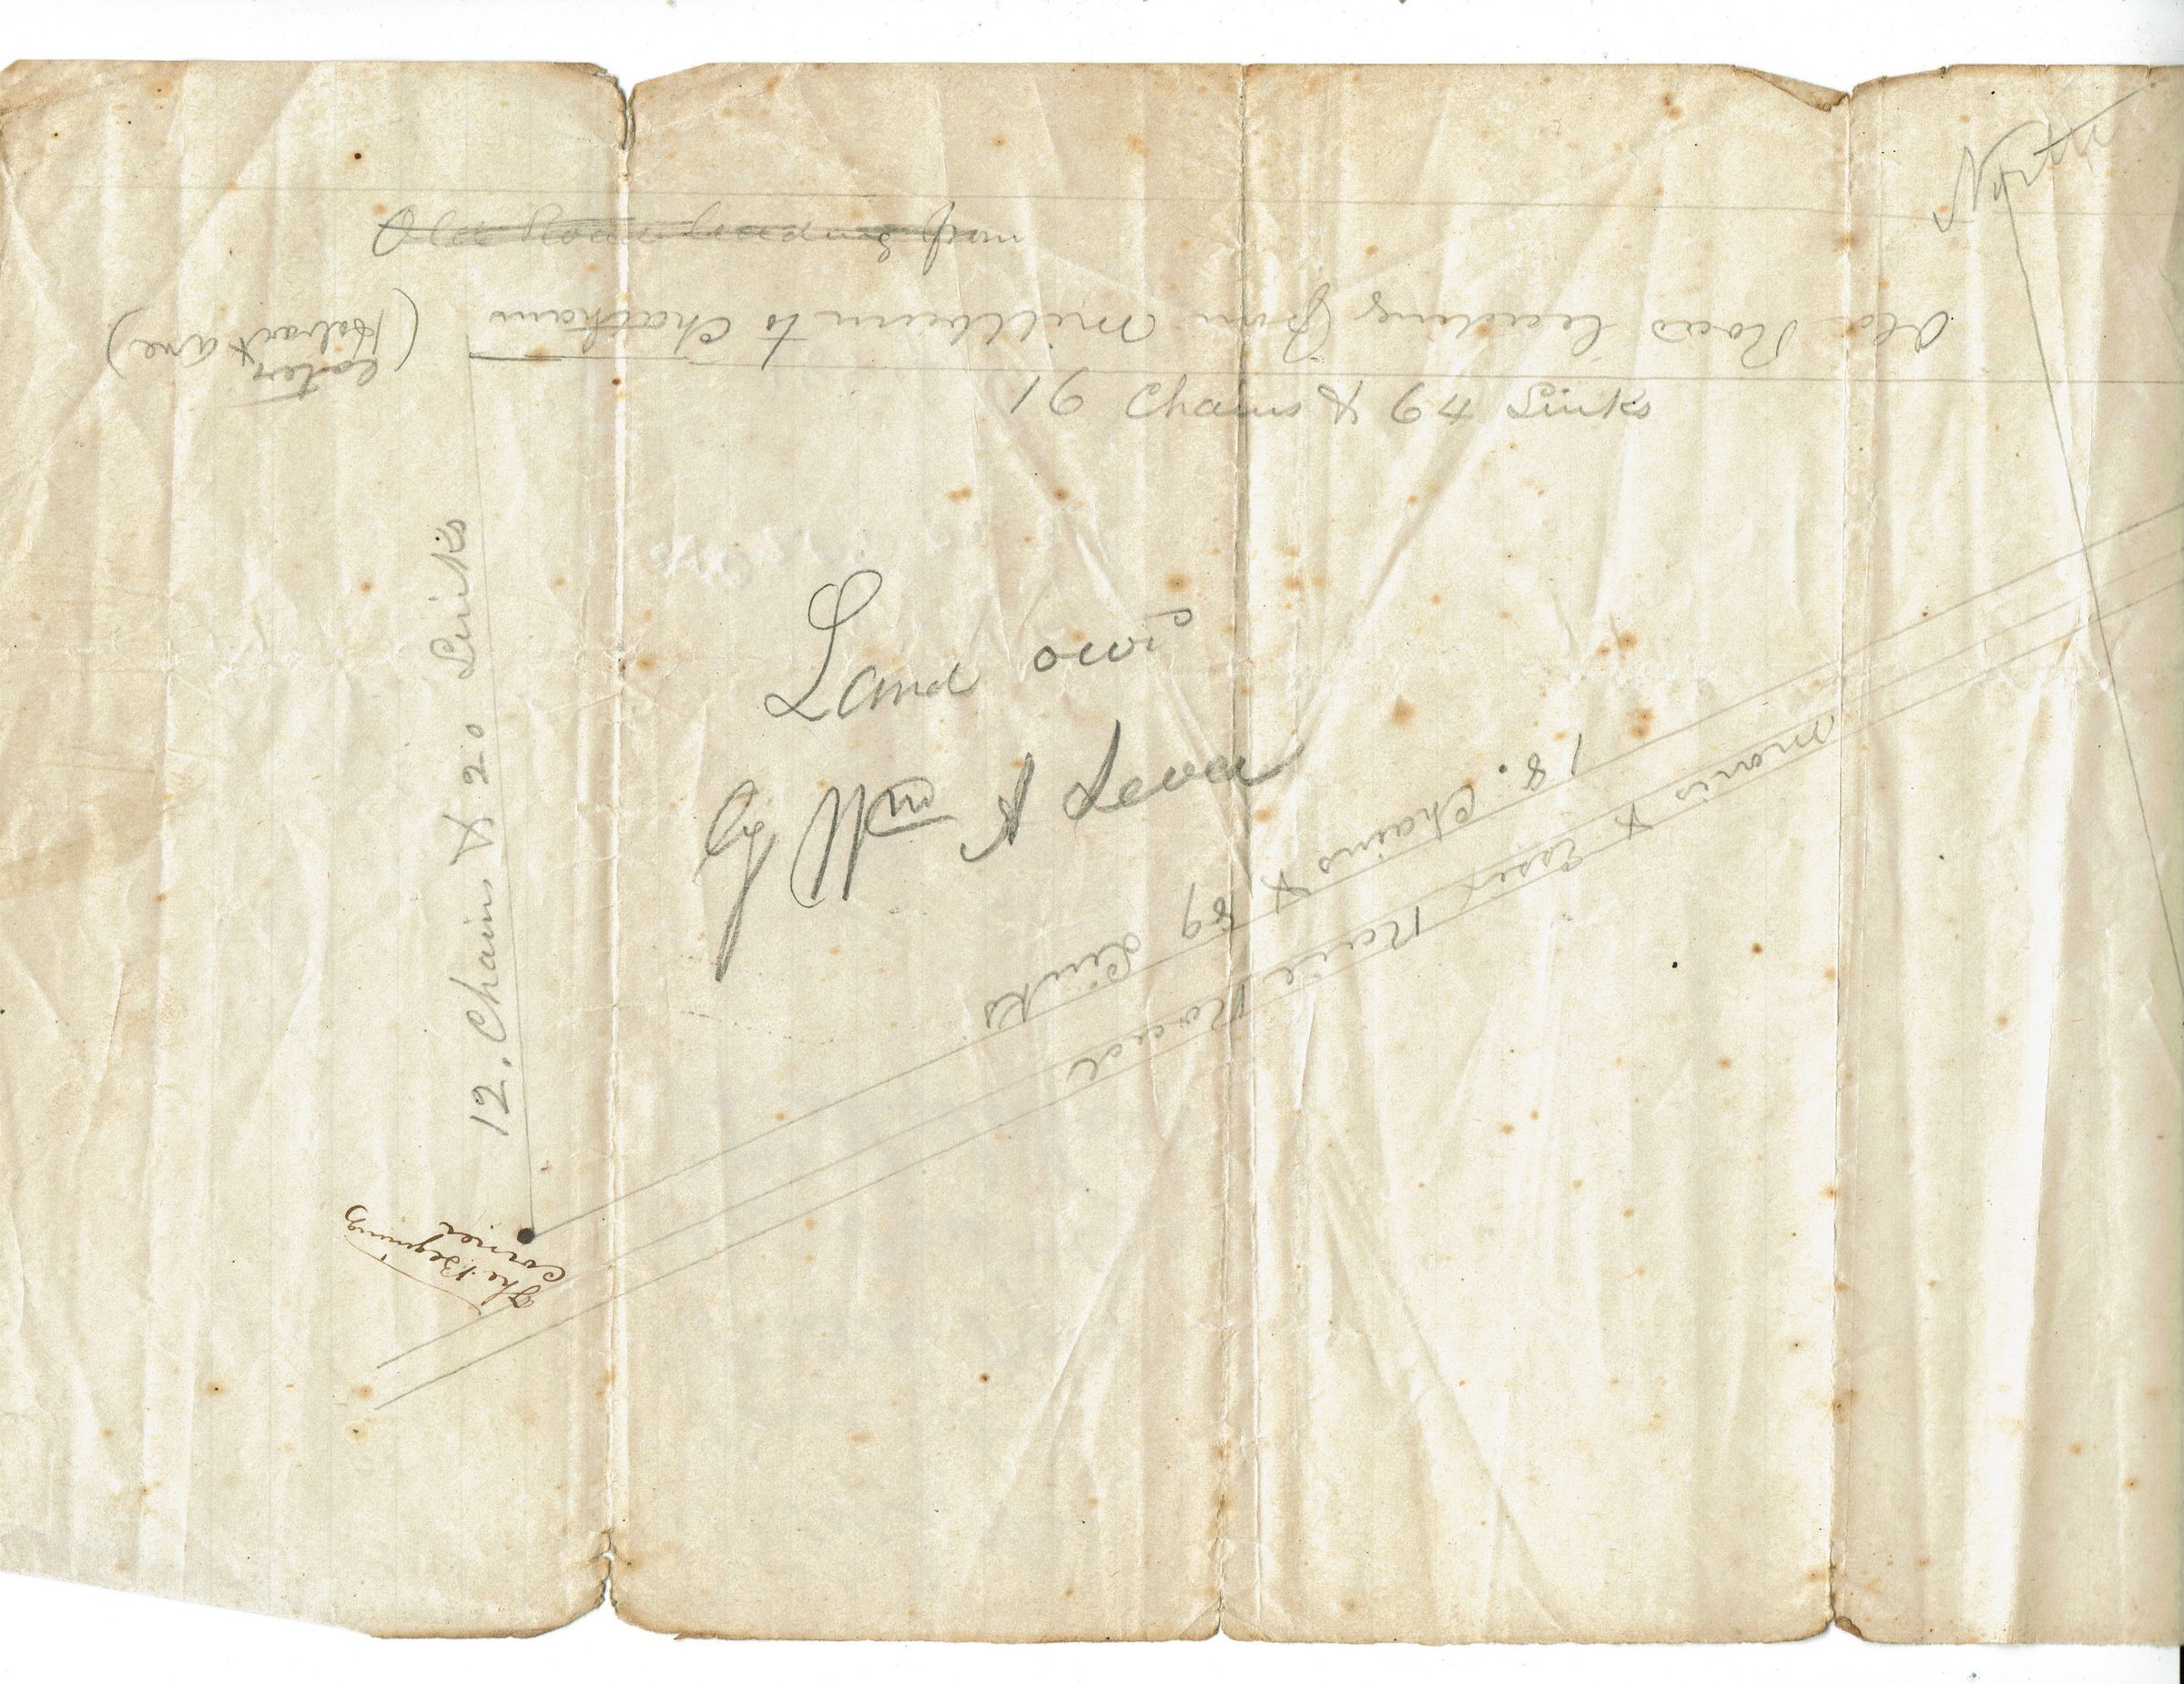 North
Old Road leading from
Old Road leading from Millburn to Chatham
(later
Hobart ave)
16 Chains & 64 Links
12. Chains & 20 Links
Land own
by Wm A Lever
18. Chains & 89 Links
Morris & Essex Rail Road
The Begining
Corner